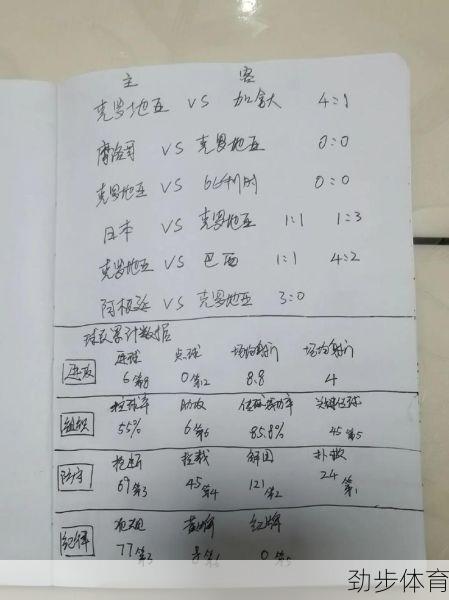 主 客
克罗地亚 VS 加拿大 4:1
摩洛哥 VS 克罗地亚 0:0
克罗地亚 VS 比利时 0:0
日本 VS 克罗地亚 1:1 1:3
克罗地亚 VS 巴西 1:1 4:2
阿根廷 VS 克罗地亚 3:0
球队累计数据
进球 点球 场均射门
进攻 6第8 0第12 8.8 4
控球率 助攻 传球成功率 关键传球
组织 55% 6第6 85.8% 45第5
抢断 拦截 解围 扑救
防守 69第3 45第4 121第2 24第1
犯规 黄牌 红牌
纪律 77第3 8 0
劲步体育